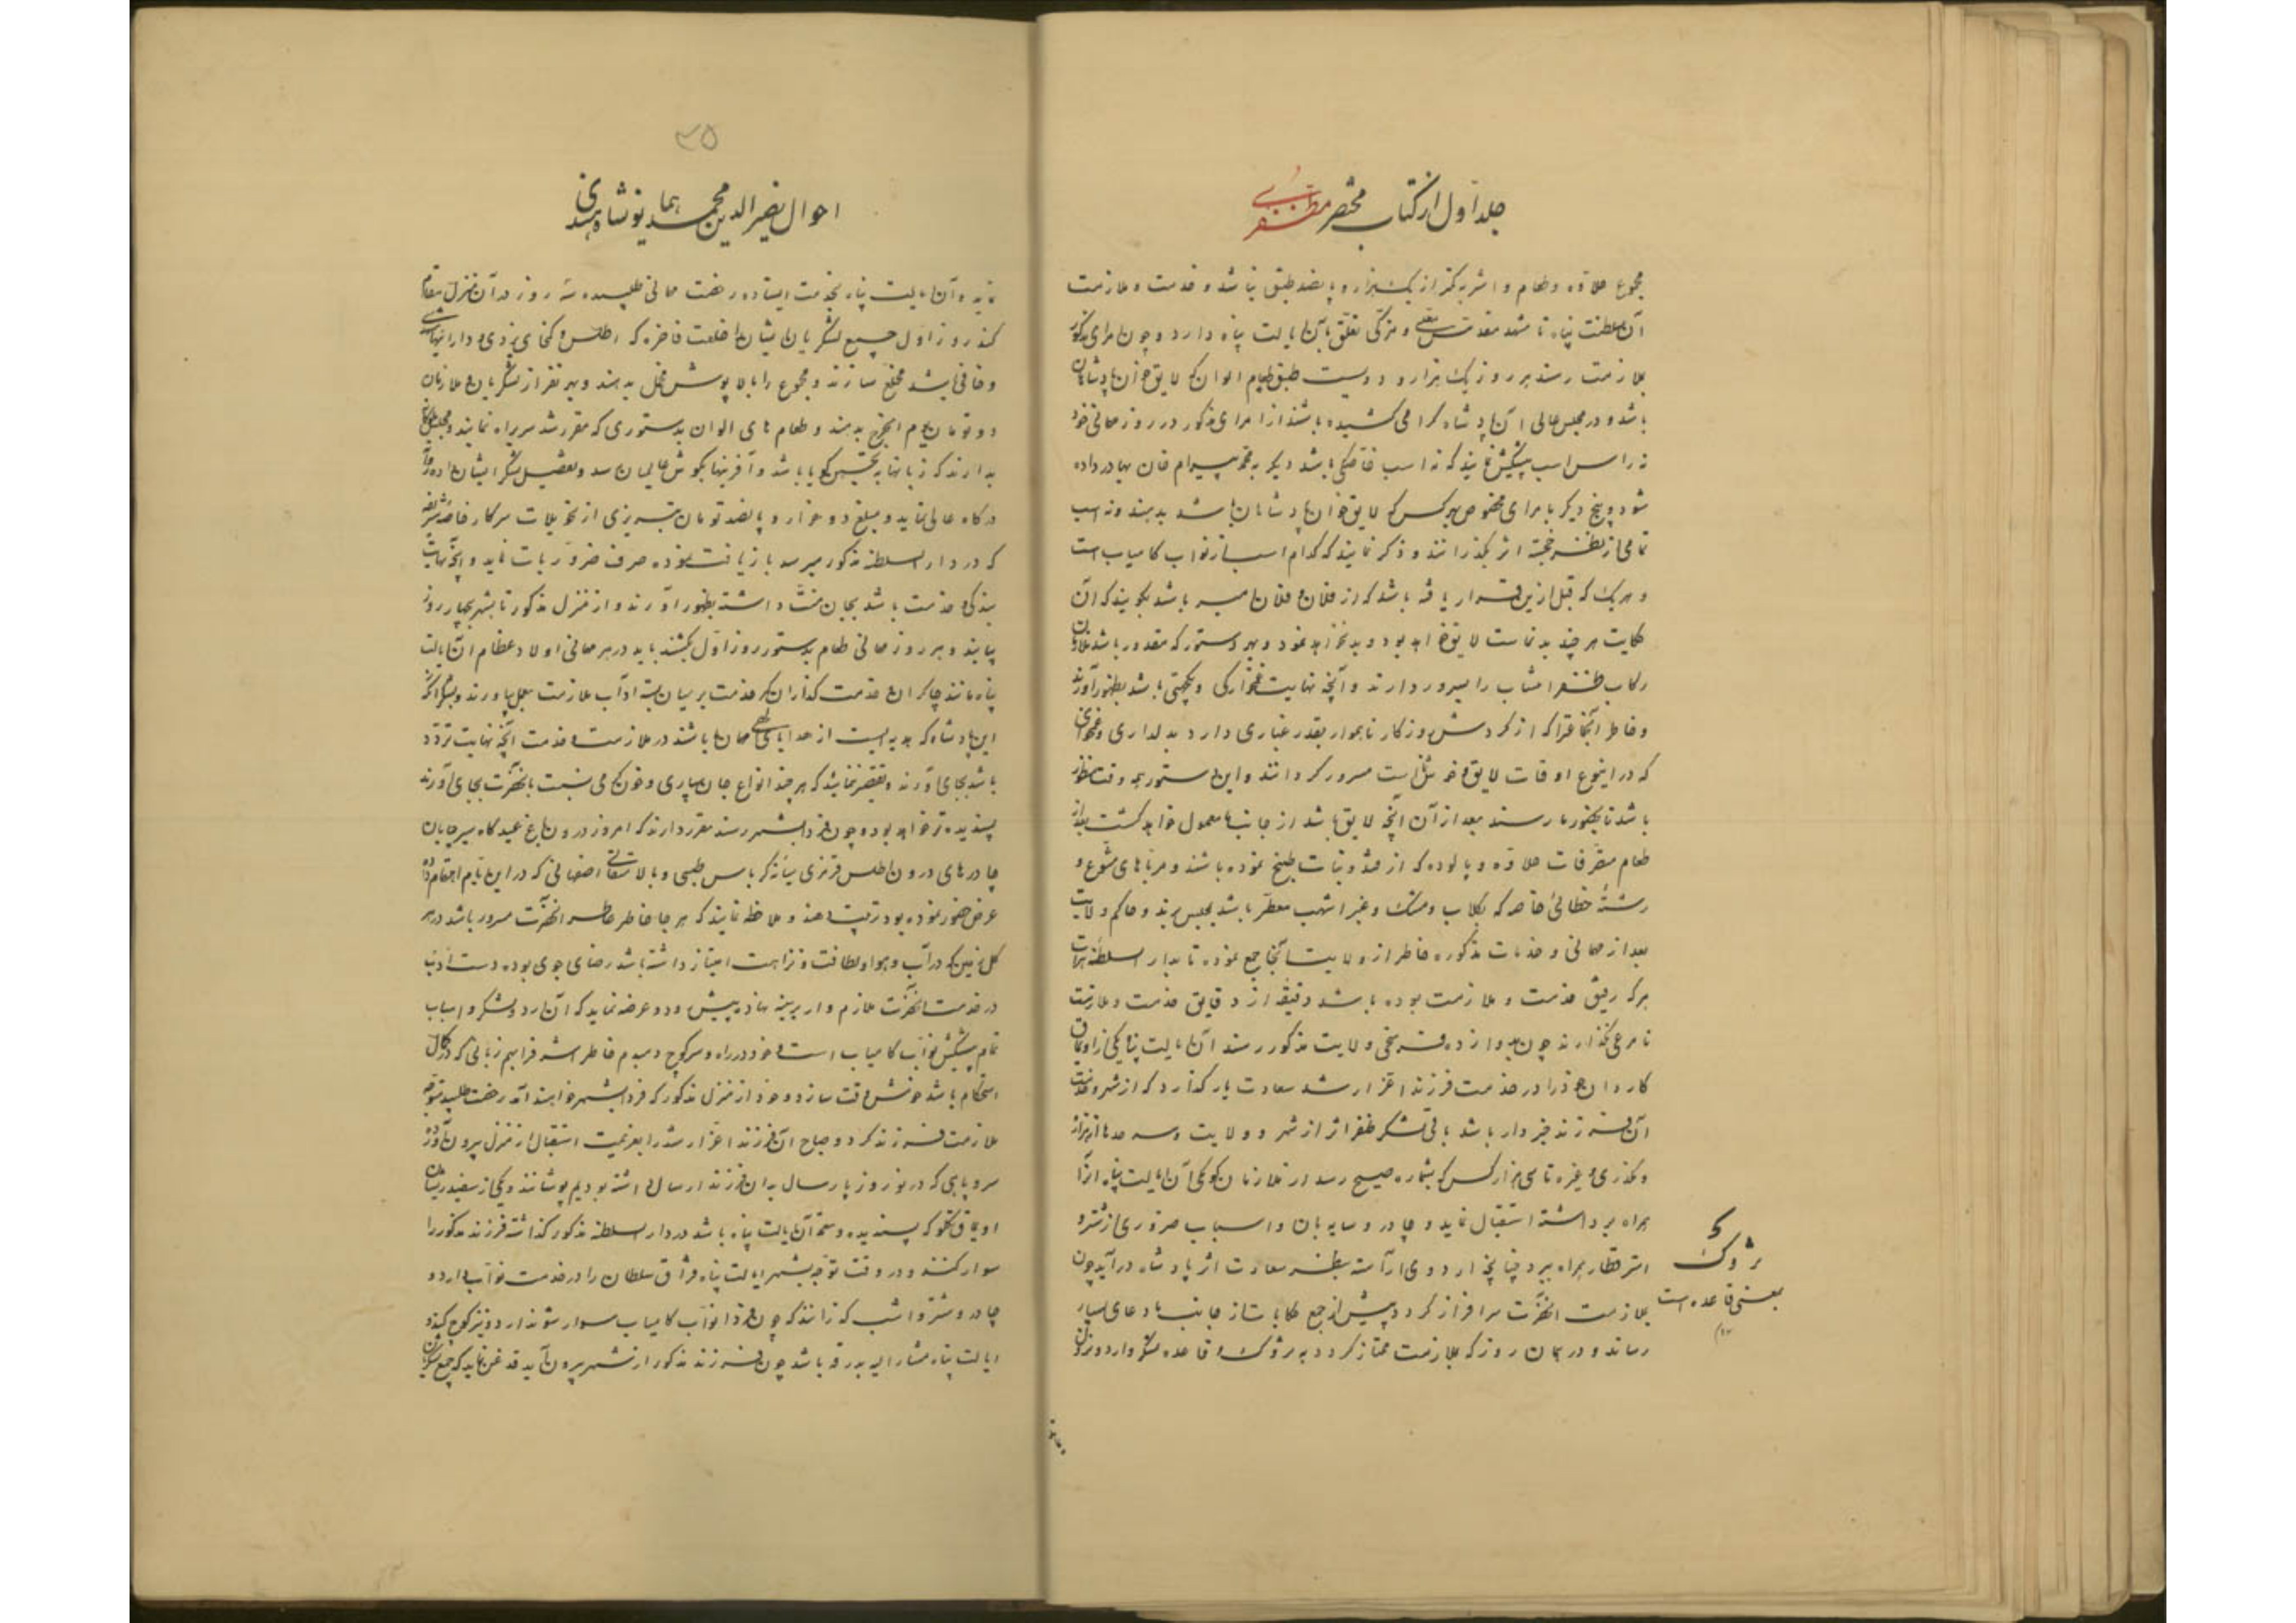 جلد اول از کتاب مختصر مظفری
مجموع حلاوه و طعام و اشربه کمتر از یک هزار و پانصد طبق نباشد و خدمت و ملازمت
آن سلطنت پناه تا مشهد مقدس معلی و مزکی تعلق بآن ایالت پناه دارد و چون امرای مذکور
بملازمت رسند هر روز یک هزار و دویست طبق طعام الوان که لایق خوان پادشاهان
باشد و در مجلس عالی آن پادشاه گرامی کشیده باشند از امرای مذکور در روز مهمانی خود
نه راس اسب پیشکش نمایند که نه اسب خاصگی باشد دیگر به محمد بیرام خان بهادر داده
شود و پنج دیگر بامرای مخصوص هرکس که لایق خوان پادشاهان باشد بدهند و نه اسب
تمامی از نظر خجسته اثر بگذرانند و ذکر نمایند که کدام اسب از نواب کامیاب است
و هریک که قبل ازین قرار یافته باشد که از فلان و فلان میر باشد بگویند که آن
حکایت هرچند بدنماست لایق خواهد بود و بد نخواهد نمود و بهر دستور که مقدور باشد ملازمان
رکاب ظفر انتساب را مسرور دارند و آنچه نهایت غمخوارگی و یکجهتی باشد بظهور آورند
و خاطر آنجناب را که از گردش روزگار ناهموار بقدر غباری دارد بدلداری و غمخواری
که در اینوع اوقات لایق و خوش نماست مسرور گردانند و این دستور همه وقت منظور
باشد تا بحضور ما رسند بعد از آن آنچه لایق باشد از جانب ما معمول خواهد گشت بعد از
طعام متفرقات حلاوه و پالوده که از قند و نبات طبخ نموده باشند و مرباهای متنوع و
رشتهٔ خطائی خاصه که بگلاب و مشک و عنبر اشهب معطر باشد بمجلس برند و حاکم ولایت
بعد از مهمانی و خدمات مذکوره خاطر از ولایت آنجا جمع نموده تا بدار السلطنه هرات
هرکه رفیق خدمت و ملازمت بوده باشد دقیقه از دقایق خدمت و ملازمت
نامرعی نگذارند چون بدوازده فرسخی ولایت مذکور رسند آن ایالت پناه یکی از اویماق
کاردان خود را در خدمت فرزند اعز ارشد سعادت یار گذارد که از شهر و خدمت
آن فرزند خبردار باشد باقی لشکر ظفر اثر از شهر و ولایت و سرحدها از هزاره
و نکدری و غیره تا سی هزار کس که بشماره صحیح رسد از ملازمان کومکی آن ایالت پناه آنرا
همراه برداشته استقبال نماید و چادر و سایه بان و اسباب ضروری از شتر و
استر قطار همراه ببرد چنانچه اردوی آراسته بنظر سعادت اثر پادشاه درآید چون
بملازمت آنحضرت سرافراز گردد پیش از جمع حکایات از جانب ما دعای بسیار
رساند و در همان روز که بملازمت ممتاز گردد به بژوک و قاعده لشکر و اردو نزول
بژوک
بمعنی قاعده است
۱۲
۳۵
احوال نصیر الدین محمد همایونشاه هندی
نماید و آن ایالت پناه بخدمت ایستاده رخصت مهمانی طلبیده سه روز در آن منزل مقام
کنند روز اول جمیع لشکریان ایشان را خلعت فاخره که اطلس و کمخای یزدی و دارائیهای مشهدی
و خافی باشد مخلع سازند و مجموع را بالاپوش مخمل بدهند و بهر نفر از لشکریان و ملازمان
دو تومان بدهند و طعام های الوان بدستوری که مقرر شد سربراه نمایند
بدارند که زبانها بتحسین گویا باشد و آفرینها بگوش عالمیان رسد و تفصیل لشکر ایشان داده روانه
درگاه عالی نماید و مبلغ دو هزار و پانصد تومان تبریزی از تحویلات سرکار خاصه شریفه
که در دار السلطنه مذکور میرسد بازیافت نموده صرف ضروریات نماید و آنچه نهایت
بندگی و خدمت باشد بجان منت داشته بظهور آورند و از منزل مذکور تا بشهر بچهار روز
بیایند و هر روز مهمانی طعام بدستور روز اول بکشند باید در هر مهمانی اولاد عظام آن ایالت
پناه مانند چاکران و خدمت گذاران کمر خدمت بر میان بسته آداب ملازمت بعمل بیاورند و بشکرانکه
این پادشاه که هدیه ایست از هدایای الهی مهمان ما باشند در ملازمت و خدمت آنچه نهایت تردد
باشد بجای آورند و تقصیر ننمایند که هر چند انواع جان سپاری و خون گرمی نسبت بآنحضرت بجای آورند
پسندیده تر خواهد بود و چون فردا بشهر رسند مقرر دارند که امروز درون باغ عیدگاه سر خیابان
چادرهای درون اطلس قرمزی میانه کرباس طبسی و بالا مثقالی اصفهانی که در این ایام اهتمام داده
عرض حضور نموده بود ترتیب دهند و ملاحظه نمایند که هر جا خاطر خاطر آنحضرت مسرور باشد و در هر
گل زمین که در آب و هوا و لطافت و نزاهت امتیاز داشته باشد رضای جوی بوده دست ادب
در خدمت آنحضرت ملازم وار بر سینه نهاده پیش رود و عرضه نماید که آن اردو و لشکر و اسباب
تمام پیشکش نواب کامیاب است و خود در راه و سر کوچ دمبدم خاطر اشرف را بهم زبانی که در کمال
استحکام باشد خوش وقت سازد و خود از منزل مذکور که فردا بشهر خواهند آمد رخصت طلبیده متوجه
ملازمت فرزند گردد و صباح آن فرزند اعز ارشد را بعزیمت استقبال از منزل بیرون آورد
سروپایی که در نوروز پارسال بدان فرزند ارسال داشته بودیم پوشانند و یکی از سفید ریشان
اویماق تکلو که پسندیده و معتمد آن ایالت پناه باشد در دار السلطنه مذکور گذاشته فرزند مذکور را
سوار کنند و در وقت توجه بشهر ایالت پناه قزاق سلطان را در خدمت نواب دارد و
چادر و شتر و اسب گذرانند که چون فردا نواب کامیاب سوار شوند اردو نیز کوچ کند و
ایالت پناه مشار الیه بدرقه باشد چون فرزند مذکور از شهر بیرون آید قدغن نماید که جمیع لشکریان